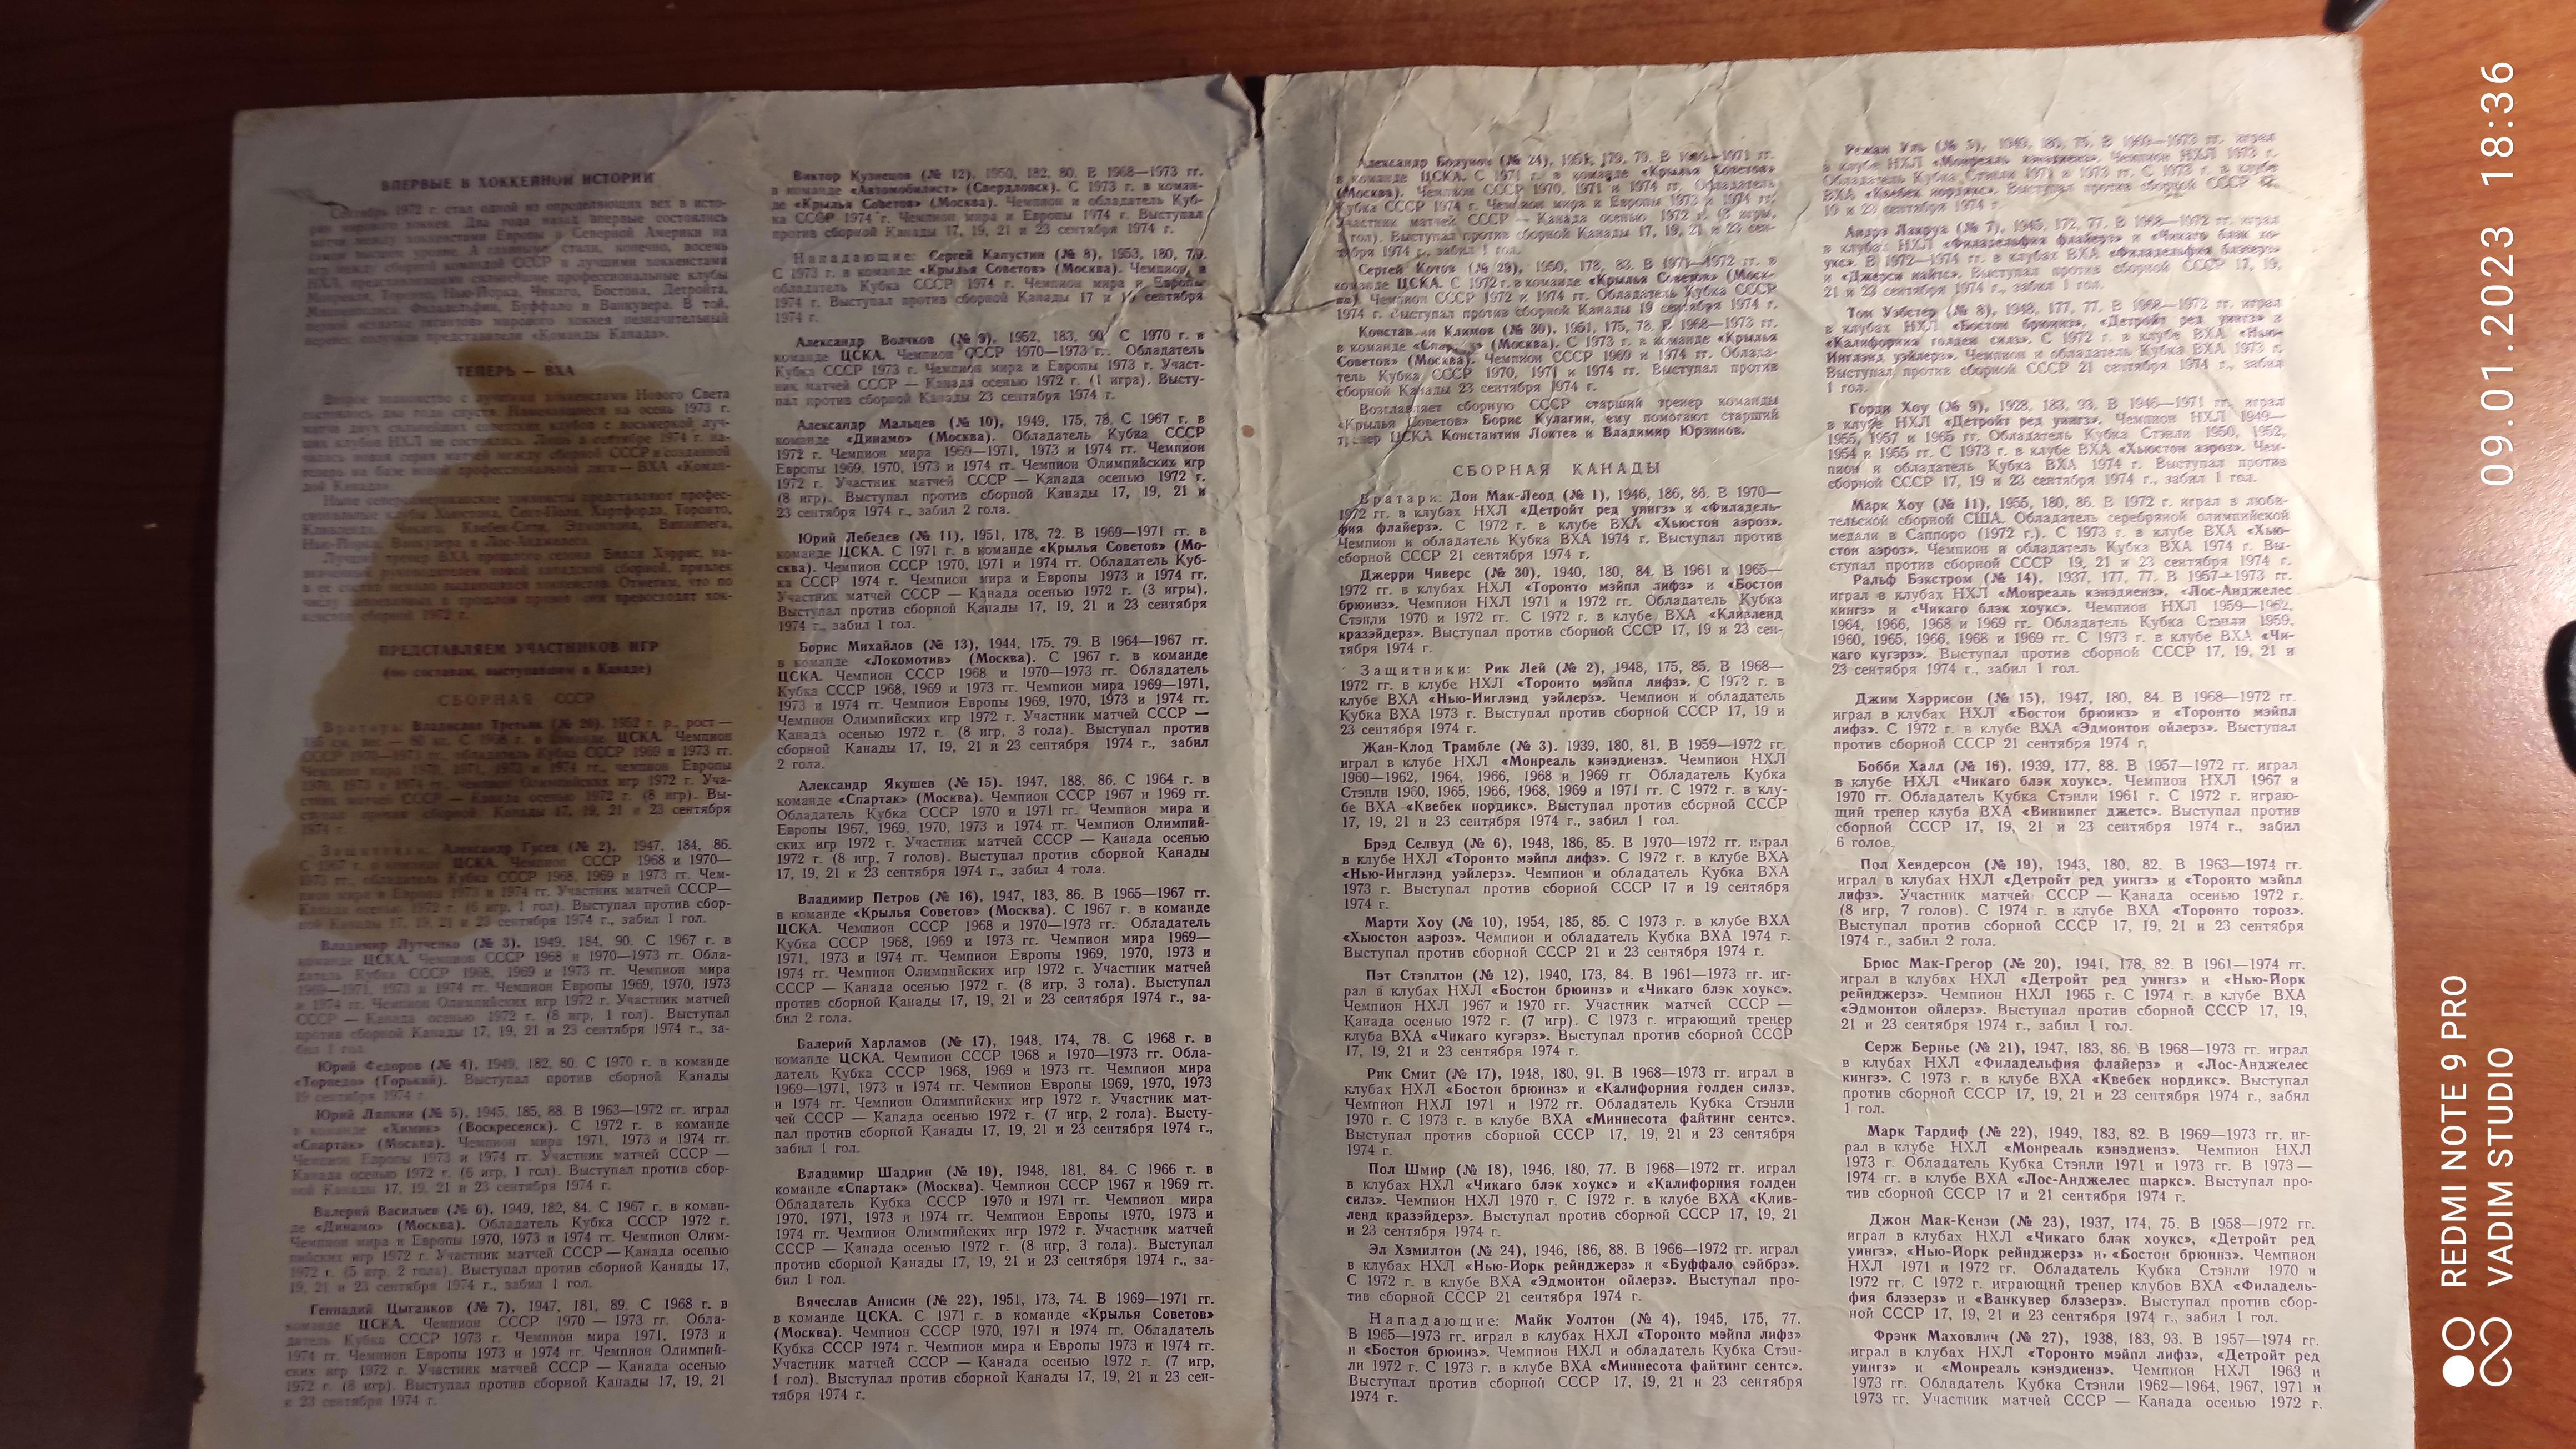 ВПЕРВЫЕ В ХОККЕЙНОЙ ИСТОРИИ
Сентябрь 1972 г. стал одной из определяющих вех в исто-
рии мирового хоккея. Два года назад впервые состоялись
матчи между хоккеистами Европы и Северной Америки на
самом высоком уровне. А главными стали, конечно, восемь
игр между сборной командой СССР и лучшими хоккеистами
НХЛ, представлявшими сильнейшие профессиональные клубы
Монреаля, Торонто, Нью-Йорка, Чикаго, Бостона, Детройта,
Филадельфии, Буффало и Ванкувера. В той,
первой «схватке гигантов» мирового хоккея незначительный
перевес получили представители «Команды Канада».
ТЕПЕРЬ — ВХА
Второе знакомство с лучшими хоккеистами Нового Света
состоялось два года спустя. Намечавшиеся на осень 1973 г.
матчи двух сильнейших советских клубов с восьмеркой луч-
ших клубов НХЛ не состоялись. Лишь в сентябре 1974 г. на-
чалась новая серия матчей между сборной СССР и созданной
теперь на базе новой профессиональной лиги — ВХА «Коман-
дой Канада».
Ныне североамериканские хоккеисты представляют профес-
сиональные клубы Хьюстона, Сент-Пола, Хартфорда, Торонто,
Кливленда, Чикаго, Квебек-Сити, Эдмонтона, Виннипега,
Нью-Йорка, Ванкувера и Лос-Анджелеса.
Лучший тренер ВХА прошлого сезона Билли Харрис, на-
значенный руководителем новой канадской сборной, привлек
в ее состав немало выдающихся хоккеистов. Отметим, что по
числу завоеванных в прошлом призов они превосходят хок-
кеистов сборной 1972 г.
ПРЕДСТАВЛЯЕМ УЧАСТНИКОВ ИГР
(по составам, выступавшим в Канаде)
СБОРНАЯ СССР
Вратарь: Владислав Третьяк (№ 20), 1952 г. р., рост —
С 1968 г. в команде ЦСКА. Чемпион
СССР 1970—1973 гг., обладатель Кубка СССР 1969 и 1973 гг.
Чемпион мира 1970, 1971, 1973 и 1974 гг., чемпион Европы
1970, 1973 и 1974 гг. Чемпион Олимпийских игр 1972 г. Уча-
стник матчей СССР — Канада осенью 1972 г. (8 игр). Вы-
ступал против сборной Канады 17, 19, 21 и 23 сентября
1974 г.
Защитники: Александр Гусев (№ 2), 1947, 184, 86.
С 1967 г. в команде ЦСКА. Чемпион СССР 1968 и 1970—
1973 гг., обладатель Кубка СССР 1968, 1969 и 1973 гг. Чем-
пион мира и Европы 1973 и 1974 гг. Участник матчей СССР—
Канада осенью 1972 г. (6 игр, 1 гол). Выступал против сбор-
ной Канады 17, 19, 21 и 23 сентября 1974 г., забил 1 гол.
Владимир Лутченко (№ 3), 1949, 184, 90. С 1967 г. в
команде ЦСКА. Чемпион СССР 1968 и 1970—1973 гг. Обла-
датель Кубка СССР 1968, 1969 и 1973 гг. Чемпион мира
1969—1971, 1973 и 1974 гг. Чемпион Европы 1969, 1970, 1973
и 1974 гг. Чемпион Олимпийских игр 1972 г. Участник матчей
СССР — Канада осенью 1972 г. (8 игр, 1 гол). Выступал
против сборной Канады 17, 19, 21 и 23 сентября 1974 г., за-
бил 1 гол.
Юрий Федоров (№ 4), 1949, 182, 80. С 1970 г. в команде
«Торпедо» (Горький). Выступал против сборной Канады
19 сентября 1974 г.
Юрий Ляпкин (№ 5), 1945, 185, 88. В 1963—1972 гг. играл
в команде «Химик» (Воскресенск). С 1972 г. в команде
«Спартак» (Москва). Чемпион мира 1971, 1973 и 1974 гг.
Чемпион Европы 1973 и 1974 гг. Участник матчей СССР —
Канада осенью 1972 г. (6 игр, 1 гол). Выступал против сбор-
ной Канады 17, 19, 21 и 23 сентября 1974 г.
Валерий Васильев (№ 6), 1949, 182, 84. С 1967 г. в коман-
де «Динамо» (Москва). Обладатель Кубка СССР 1972 г.
Чемпион мира и Европы 1970, 1973 и 1974 гг. Чемпион Олим-
пийских игр 1972 г. Участник матчей СССР—Канада осенью
1972 г. (5 игр, 2 гола). Выступал против сборной Канады 17,
19, 21 и 23 сентября 1974 г., забил 1 гол.
Геннадий Цыганков (№ 7), 1947, 181, 89. С 1968 г. в
команде ЦСКА. Чемпион СССР 1970 — 1973 гг. Обла-
датель Кубка СССР 1973 г. Чемпион мира 1971, 1973 и
1974 гг. Чемпион Европы 1973 и 1974 гг. Чемпион Олимпий-
ских игр 1972 г. Участник матчей СССР — Канада осенью
1972 г. (8 игр). Выступал против сборной Канады 17, 19, 21
и 23 сентября 1974 г.
Виктор Кузнецов (№ 12), 1950, 182, 80. В 1968—1973 гг.
в команде «Автомобилист» (Свердловск). С 1973 г. в коман-
де «Крылья Советов» (Москва). Чемпион и обладатель Куб-
ка СССР 1974 г. Чемпион мира и Европы 1974 г. Выступал
против сборной Канады 17, 19, 21 и 23 сентября 1974 г.
Нападающие: Сергей Капустин (№ 8), 1953, 180, 79.
С 1973 г. в команде «Крылья Советов» (Москва). Чемпион и
обладатель Кубка СССР 1974 г. Чемпион мира и Европы
1974 г. Выступал против сборной Канады 17 и 19 сентября
1974 г.
Александр Волчков (№ 9), 1952, 183, 90. С 1970 г. в
команде ЦСКА. Чемпион СССР 1970—1973 г. Обладатель
Кубка СССР 1973 г. Чемпион мира и Европы 1973 г. Участ-
ник матчей СССР — Канада осенью 1972 г. (1 игра). Высту-
пал против сборной Канады 23 сентября 1974 г.
Александр Мальцев (№ 10), 1949, 175, 78. С 1967 г. в
команде «Динамо» (Москва). Обладатель Кубка СССР
1972 г. Чемпион мира 1969—1971, 1973 и 1974 гг. Чемпион
Европы 1969, 1970, 1973 и 1974 гг. Чемпион Олимпийских игр
1972 г. Участник матчей СССР — Канада осенью 1972 г.
(8 игр). Выступал против сборной Канады 17, 19, 21 и
23 сентября 1974 г., забил 2 гола.
Юрий Лебедев (№ 11), 1951, 178, 72. В 1969—1971 гг. в
команде ЦСКА. С 1971 г. в команде «Крылья Советов» (Мо-
сква). Чемпион СССР 1970, 1971 и 1974 гг. Обладатель Куб-
ка СССР 1974 г. Чемпион мира и Европы 1973 и 1974 гг.
Участник матчей СССР — Канада осенью 1972 г. (3 игры).
Выступал против сборной Канады 17, 19, 21 и 23 сентября
1974 г., забил 1 гол.
Борис Михайлов (№ 13), 1944, 175, 79. В 1964—1967 гг.
в команде «Локомотив» (Москва). С 1967 г. в команде
ЦСКА. Чемпион СССР 1968 и 1970—1973 гг. Обладатель
Кубка СССР 1968, 1969 и 1973 гг. Чемпион мира 1969—1971,
1973 и 1974 гг. Чемпион Европы 1969, 1970, 1973 и 1974 гг.
Чемпион Олимпийских игр 1972 г. Участник матчей СССР —
Канада осенью 1972 г. (8 игр, 3 гола). Выступал против
сборной Канады 17, 19, 21 и 23 сентября 1974 г., забил
2 гола.
Александр Якушев (№ 15). 1947, 188, 86. С 1964 г. в
команде «Спартак» (Москва). Чемпион СССР 1967 и 1969 гг.
Обладатель Кубка СССР 1970 и 1971 гг. Чемпион мира и
Европы 1967, 1969, 1970, 1973 и 1974 гг. Чемпион Олимпий-
ских игр 1972 г. Участник матчей СССР — Канада осенью
1972 г. (8 игр, 7 голов). Выступал против сборной Канады
17, 19, 21 и 23 сентября 1974 г., забил 4 гола.
Владимир Петров (№ 16), 1947, 183, 86. В 1965—1967 гг.
в команде «Крылья Советов» (Москва). С 1967 г. в команде
ЦСКА. Чемпион СССР 1968 и 1970—1973 гг. Обладатель
Кубка СССР 1968, 1969 и 1973 гг. Чемпион мира 1969—
1971, 1973 и 1974 гг. Чемпион Европы 1969, 1970, 1973 и
1974 гг. Чемпион Олимпийских игр 1972 г. Участник матчей
СССР — Канада осенью 1972 г. (8 игр, 3 гола). Выступал
против сборной Канады 17, 19, 21 и 23 сентября 1974 г., за-
бил 2 гола.
Валерий Харламов (№ 17), 1948, 174, 78. С 1968 г. в
команде ЦСКА. Чемпион СССР 1968 и 1970—1973 гг. Обла-
датель Кубка СССР 1968, 1969 и 1973 гг. Чемпион мира
1969—1971, 1973 и 1974 гг. Чемпион Европы 1969, 1970, 1973
и 1974 гг. Чемпион Олимпийских игр 1972 г. Участник мат-
чей СССР — Канада осенью 1972 г. (7 игр, 2 гола). Высту-
пал против сборной Канады 17, 19, 21 и 23 сентября 1974 г.,
забил 1 гол.
Владимир Шадрин (№ 19), 1948, 181, 84. С 1966 г. в
команде «Спартак» (Москва). Чемпион СССР 1967 и 1969 гг.
Обладатель Кубка СССР 1970 и 1971 гг. Чемпион мира
1970, 1971, 1973 и 1974 гг. Чемпион Европы 1970, 1973 и
1974 гг. Чемпион Олимпийских игр 1972 г. Участник матчей
СССР — Канада осенью 1972 г. (8 игр, 3 гола). Выступал
против сборной Канады 17, 19, 21 и 23 сентября 1974 г., за-
бил 1 гол.
Вячеслав Анисин (№ 22), 1951, 173, 74. В 1969—1971 гг.
в команде ЦСКА. С 1971 г. в команде «Крылья Советов»
(Москва). Чемпион СССР 1970, 1971 и 1974 гг. Обладатель
Кубка СССР 1974 г. Чемпион мира и Европы 1973 и 1974 гг.
Участник матчей СССР — Канада осенью 1972 г. (7 игр,
1 гол). Выступал против сборной Канады 17, 19, 21 и 23 сен-
тября 1974 г.
Александр Бодунов (№ 24), 1951, 179, 79. В 1969—1971 гг.
в команде ЦСКА. С 1971 г. в команде «Крылья Советов»
(Москва). Чемпион СССР 1970, 1971 и 1974 гг. Обладатель
Кубка СССР 1974 г. Чемпион мира и Европы 1973 и 1974 гг.
Участник матчей СССР — Канада осенью 1972 г. (3 игры,
1 гол). Выступал против сборной Канады 17, 19, 21 и 23 сен-
тября 1974 г., забил 1 гол.
Сергей Котов (№ 29), 1950, 178, 83. В 1971—1972 гг. в
команде ЦСКА. С 1972 г. в команде «Крылья Советов» (Моск-
ва). Чемпион СССР 1972 и 1974 гг. Обладатель Кубка СССР
1974 г. Выступал против сборной Канады 19 сентября 1974 г.
Константин Климов (№ 30), 1951, 175, 78. В 1968—1973 гг.
в команде «Спартак» (Москва). С 1973 г. в команде «Крылья
Советов» (Москва). Чемпион СССР 1969 и 1974 гг. Облада-
тель Кубка СССР 1970, 1971 и 1974 гг. Выступал против
сборной Канады 23 сентября 1974 г.
Возглавляет сборную СССР старший тренер команды
«Крылья Советов» Борис Кулагин, ему помогают старший
тренер ЦСКА Константин Локтев и Владимир Юрзинов.
СБОРНАЯ КАНАДЫ
Вратари: Дон Мак-Леод (№ 1), 1946, 186, 86. В 1970—
1972 гг. в клубах НХЛ «Детройт ред уингз» и «Филадель-
фия флайерз». С 1972 г. в клубе ВХА «Хьюстон аэроз».
Чемпион и обладатель Кубка ВХА 1974 г. Выступал против
сборной СССР 21 сентября 1974 г.
Джерри Чиверс (№ 30), 1940, 180, 84. В 1961 и 1965—
1972 гг. в клубах НХЛ «Торонто мэйпл лифз» и «Бостон
брюинз». Чемпион НХЛ 1971 и 1972 гг. Обладатель Кубка
Стэнли 1970 и 1972 гг. С 1972 г. в клубе ВХА «Кливленд
кразэйдерз». Выступал против сборной СССР 17, 19 и 23 сен-
тября 1974 г.
Защитники: Рик Лей (№ 2), 1948, 175, 85. В 1968—
1972 гг. в клубе НХЛ «Торонто мэйпл лифз». С 1972 г. в
клубе ВХА «Нью-Инглэнд уэйлерз». Чемпион и обладатель
Кубка ВХА 1973 г. Выступал против сборной СССР 17, 19 и
23 сентября 1974 г.
Жан-Клод Трамбле (№ 3). 1939, 180, 81. В 1959—1972 гг.
играл в клубе НХЛ «Монреаль кэнэдиенз». Чемпион НХЛ
1960—1962, 1964, 1966, 1968 и 1969 гг Обладатель Кубка
Стэнли 1960, 1965, 1966, 1968, 1969 и 1971 гг. С 1972 г. в клу-
бе ВХА «Квебек нордикс». Выступал против сборной СССР
17, 19, 21 и 23 сентября 1974 г., забил 1 гол.
Брэд Селвуд (№ 6), 1948, 186, 85. В 1970—1972 гг. играл
в клубе НХЛ «Торонто мэйпл лифз». С 1972 г. в клубе ВХА
«Нью-Ингленд уэйлерз». Чемпион и обладатель Кубка ВХА
1973 г. Выступал против сборной СССР 17 и 19 сентября
1974 г.
Марти Хоу (№ 10), 1954, 185, 85. С 1973 г. в клубе ВХА
«Хьюстон аэроз». Чемпион и обладатель Кубка ВХА 1974 г.
Выступал против сборной СССР 21 и 23 сентября 1974 г.
Пэт Стэплтон (№ 12), 1940, 173, 84. В 1961—1973 гг. иг-
рал в клубах НХЛ «Бостон брюинз» и «Чикаго блэк хоукс».
Чемпион НХЛ 1967 и 1970 гг. Участник матчей СССР —
Канада осенью 1972 г. (7 игр). С 1973 г. играющий тренер
клуба ВХА «Чикаго кугэрз». Выступал против сборной СССР
17, 19, 21 и 23 сентября 1974 г.
Рик Смит (№ 17), 1948, 180, 91. В 1968—1973 гг. играл в
клубах НХЛ «Бостон брюинз» и «Калифорния голден силз».
Чемпион НХЛ 1971 и 1972 гг. Обладатель Кубка Стэнли
1970 г. С 1973 г. в клубе ВХА «Миннесота файтинг сентс».
Выступал против сборной СССР 17, 19, 21 и 23 сентября
1974 г.
Пол Шмир (№ 18), 1946, 180, 77. В 1968—1972 гг. играл
в клубах НХЛ «Чикаго блэк хоукс» и «Калифорния голден
силз». Чемпион НХЛ 1970 г. С 1972 г. в клубе ВХА «Клив-
ленд кразэйдерз». Выступал против сборной СССР 17, 19, 21
и 23 сентября 1974 г.
Эл Хэмилтон (№ 24), 1946, 186, 88. В 1966—1972 гг. играл
в клубах НХЛ «Нью-Йорк рейнджерз» и «Буффало сэйбрз».
С 1972 г. в клубе ВХА «Эдмонтон ойлерз». Выступал про-
тив сборной СССР 21 сентября 1974 г.
Нападающие: Майк Уолтон (№ 4), 1945, 175, 77.
В 1965—1973 гг. играл в клубах НХЛ «Торонто мэйпл лифз»
и «Бостон брюинз». Чемпион НХЛ и обладатель Кубка Стэн-
ли 1972 г. С 1973 г. в клубе ВХА «Миннесота файтинг сентс».
Выступал против сборной СССР 17, 19, 21 и 23 сентября
1974 г.
Режан Уль (№ 5), 1949, 180, 75. В 1969—1973 гг. играл
в клубе НХЛ «Монреаль кэнэдиенз». Чемпион НХЛ 1973 г.
Обладатель Кубка Стэнли 1971 и 1973 гг. С 1973 г. в клубе
ВХА «Квебек нордикс». Выступал против сборной СССР 17,
19 и 23 сентября 1974 г.
Андрэ Лакруа (№ 7), 1945, 172, 77. В 1968—1972 гг. играл
в клубах НХЛ «Филадельфия флайерз» и «Чикаго блэк хо-
укс». В 1972—1974 гг. в клубах ВХА «Филадельфия блэзерз»
и «Джерси найтс». Выступал против сборной СССР 17, 19,
21 и 23 сентября 1974 г., забил 1 гол.
Том Уэбстер (№ 8), 1948, 177, 77. В 1968—1972 гг. играл
в клубах НХЛ «Бостон брюинз», «Детройт ред уингз» и
«Калифорния голден силз». С 1972 г. в клубе ВХА «Нью-
Инглэнд уэйлерз». Чемпион и обладатель Кубка ВХА 1973 г.
Выступал против сборной СССР 21 сентября 1974 г., забил
1 гол.
Горди Хоу (№ 9), 1928, 183, 93. В 1946—1971 гг. играл
в клубе НХЛ «Детройт ред уингз». Чемпион НХЛ 1949—
1955, 1957 и 1965 гг. Обладатель Кубка Стэнли 1950, 1952,
1954 и 1955 гг. С 1973 г. в клубе ВХА «Хьюстон аэроз». Чем-
пион и обладатель Кубка ВХА 1974 г. Выступал против
сборной СССР 17, 19 и 23 сентября 1974 г., забил 1 гол.
Марк Хоу (№ 11), 1955, 180, 86. В 1972 г. играл в люби-
тельской сборной США. Обладатель серебряной олимпийской
медали в Саппоро (1972 г.). С 1973 г. в клубе ВХА «Хью-
стон аэроз». Чемпион и обладатель Кубка ВХА 1974 г. Вы-
ступал против сборной СССР 19, 21 и 23 сентября 1974 г.
Ральф Бэкстром (№ 14), 1937, 177, 77. В 1957—1973 гг.
играл в клубах НХЛ «Монреаль кэнэдиенз», «Лос-Анджелес
кингз» и «Чикаго блэк хоукс». Чемпион НХЛ 1959—1962,
1964, 1966, 1968 и 1969 гг. Обладатель Кубка Стэнли 1959,
1960, 1965, 1966, 1968 и 1969 гг. С 1973 г. в клубе ВХА «Чи-
каго кугэрз». Выступал против сборной СССР 17, 19, 21 и
23 сентября 1974 г., забил 1 гол.
Джим Хэррисон (№ 15), 1947, 180, 84. В 1968—1972 гг.
играл в клубах НХЛ «Бостон брюинз» и «Торонто мэйпл
лифз». С 1972 г. в клубе ВХА «Эдмонтон ойлерз». Выступал
против сборной СССР 21 сентября 1974 г.
Бобби Халл (№ 16), 1939, 177, 88. В 1957—1972 гг. играл
в клубе НХЛ «Чикаго блэк хоукс». Чемпион НХЛ 1967 и
1970 гг. Обладатель Кубка Стэнли 1961 г. С 1972 г. играю-
щий тренер клуба ВХА «Виннипег джетс». Выступал против
сборной СССР 17, 19, 21 и 23 сентября 1974 г., забил
6 голов.
Пол Хендерсон (№ 19), 1943, 180, 82. В 1963—1974 гг.
играл в клубах НХЛ «Детройт ред уингз» и «Торонто мэйпл
лифз». Участник матчей СССР — Канада осенью 1972 г.
(8 игр, 7 голов). С 1974 г. в клубе ВХА «Торонто тороз».
Выступал против сборной СССР 17, 19, 21 и 23 сентября
1974 г., забил 2 гола.
Брюс Мак-Грегор (№ 20), 1941, 178, 82. В 1961—1974 гг.
играл в клубах НХЛ «Детройт ред уингз» и «Нью-Йорк
рейнджерз». Чемпион НХЛ 1965 г. С 1974 г. в клубе ВХА
«Эдмонтон ойлерз». Выступал против сборной СССР 17, 19,
21 и 23 сентября 1974 г., забил 1 гол.
Серж Бернье (№ 21), 1947, 183, 86. В 1968—1973 гг. играл
в клубах НХЛ «Филадельфия флайерз» и «Лос-Анджелес
кингз». С 1973 г. в клубе ВХА «Квебек нордикс». Выступал
против сборной СССР 17, 19, 21 и 23 сентября 1974 г., забил
1 гол.
Марк Тардиф (№ 22), 1949, 183, 82. В 1969—1973 гг. иг-
рал в клубе НХЛ «Монреаль кэнэдиенз». Чемпион НХЛ
1973 г. Обладатель Кубка Стэнли 1971 и 1973 гг. В 1973—
1974 гг. в клубе ВХА «Лос-Анджелес шаркс». Выступал про-
тив сборной СССР 17 и 21 сентября 1974 г.
Джон Мак-Кензи (№ 23), 1937, 174, 75. В 1958—1972 гг.
играл в клубах НХЛ «Чикаго блэк хоукс», «Детройт ред
уингз», «Нью-Йорк рейнджерз» и «Бостон брюинз». Чемпион
НХЛ 1971 и 1972 гг. Обладатель Кубка Стэнли 1970 и
1972 гг. С 1972 г. играющий тренер клубов ВХА «Филадель-
фия блэзерз» и «Ванкувер блэзерз». Выступал против сбор-
ной СССР 17, 19, 21 и 23 сентября 1974 г., забил 1 гол.
Фрэнк Маховлич (№ 27), 1938, 183, 93. В 1957—1974 гг.
играл в клубах НХЛ «Торонто мэйпл лифз», «Детройт ред
уингз» и «Монреаль кэнэдиенз». Чемпион НХЛ 1963 и
1973 гг. Обладатель Кубка Стэнли 1962—1964, 1967, 1971 и
1973 гг. Участник матчей СССР — Канада осенью 1972 г.
REDMI NOTE 9 PRO
VADIM STUDIO
09.01.2023 18:36